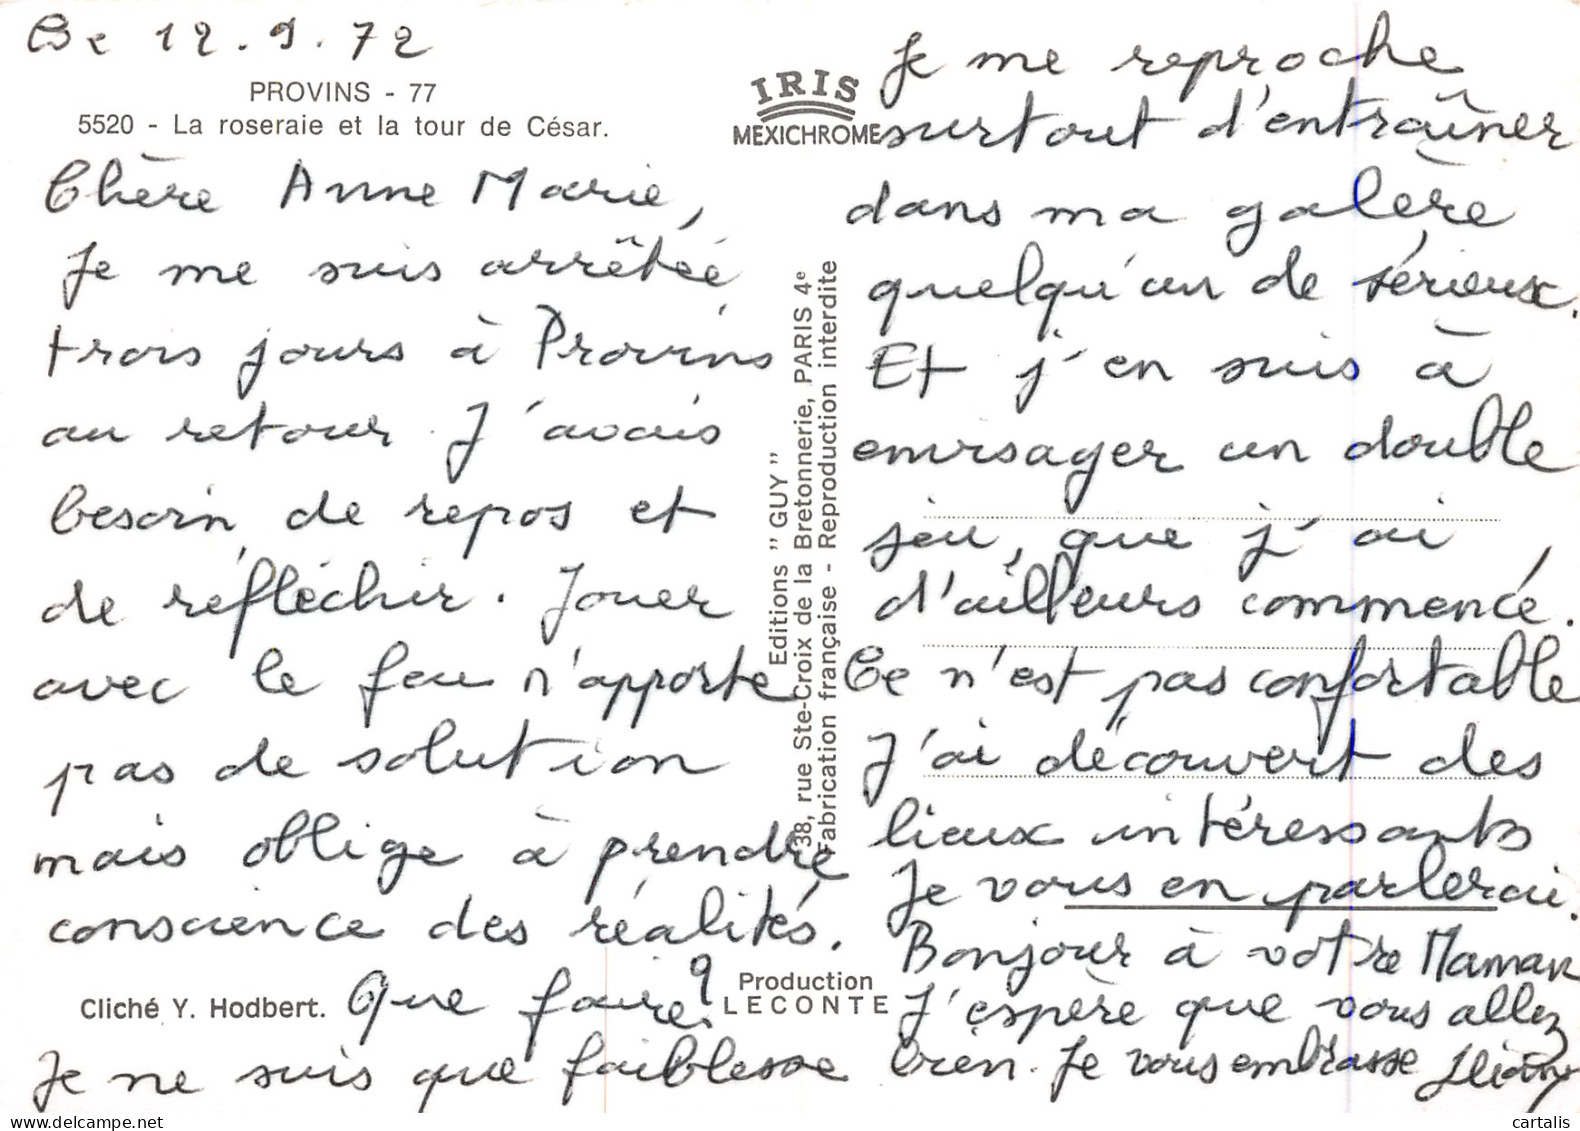 Ce 12.9.72
PROVINS - 77
5520 - La roseraie et la tour de César.
Chère Anne Marie,
Je me suis arrêtée
trois jours à Provins
au retour. J'avais
besoin de repos et
de réfléchir. Jouer
avec le feu n'apporte
pas de solution
mais oblige à prendre
conscience des réalités.
Cliché Y. Hodbert.
Que faire?
Je ne suis que faiblesse
IRIS
MEXICHROME
Editions "GUY"
38, rue Ste-Croix de la Bretonnerie, PARIS 4e
Fabrication française - Reproduction interdite
Production
LECONTE
Je me reproche
surtout d'entraîner
dans ma galère
quelqu'un de sérieux.
Et j'en suis à
envisager un double
jeu, que j'ai,
d'ailleurs commencé.
Ce n'est pas confortable
J'ai découvert des
lieux intéressants
Je vous en parlerai.
Bonjour à votre Maman
J'espère que vous allez
bien. Je vous embrasse
cartalis.com